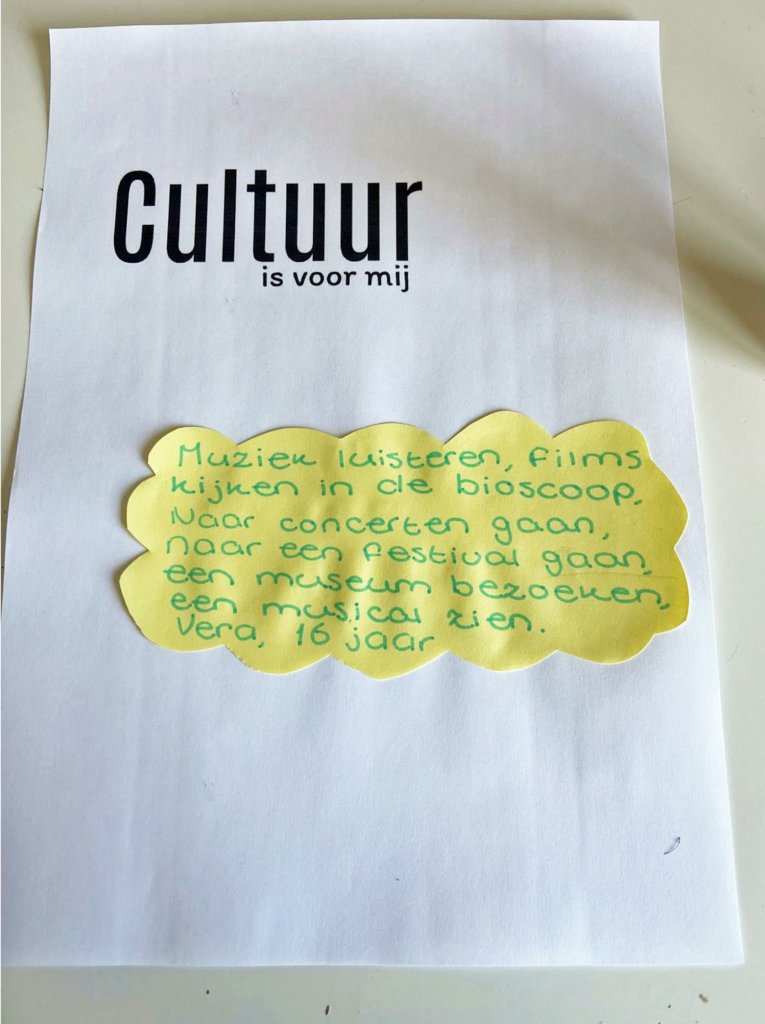 Cultuur
is voor mij
Muziek luisteren, films
kijken in de bioscoop,
Naar concerten gaan,
naar een festival gaan,
een museum bezoeken,
een musical zien.
Vera, 16 jaar